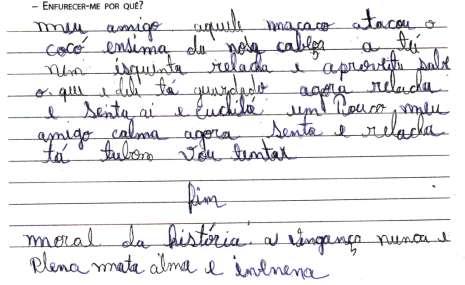 – ENFURECER-ME POR QUÊ?
meu amigo aquele macaco atacou o
cocó ensima da nosa cabeça a tú
nem isquenta relacha e aproveita sabe
o que e dele tá guardado agora relacha
e senta ai e cuchilá um Pouco meu
amigo calma agora senta e relacha
tá tabom vou tentar
fim
moral da história a vingança nunca e
Plena mata alma e invenena